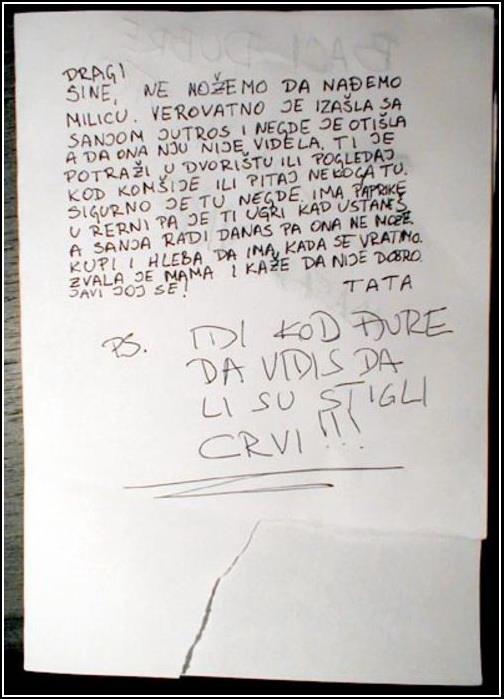 DRAGI
SINE, NE MOŽEMO DA NAĐEMO
MILICU. VEROVATNO JE IZAŠLA SA
SANJOM JUTROS I NEGDE JE OTIŠLA
A DA ONA NJU NIJE VIDELA. TI JE
POTRAŽI U DVORIŠTU ILI POGLEDAJ
KOD KOMŠIJE ILI PITAJ NEKOGA TU.
SIGURNO JE TU NEGDE. IMA PAPRIKE
U RERNI PA JE TI UGRI KAD USTANEŠ
A SANJA RADI DANAS PA ONA NE MOŽE.
KUPI I HLEBA DA IMA, KADA SE VRATIMO.
ZVALA JE MAMA I KAŽE DA NIJE DOBRO.
JAVI JOJ SE!
TATA
PS. IDI KOD ĐURE
DA VIDIS DA
LI SU STIGLI
CRVI!!!